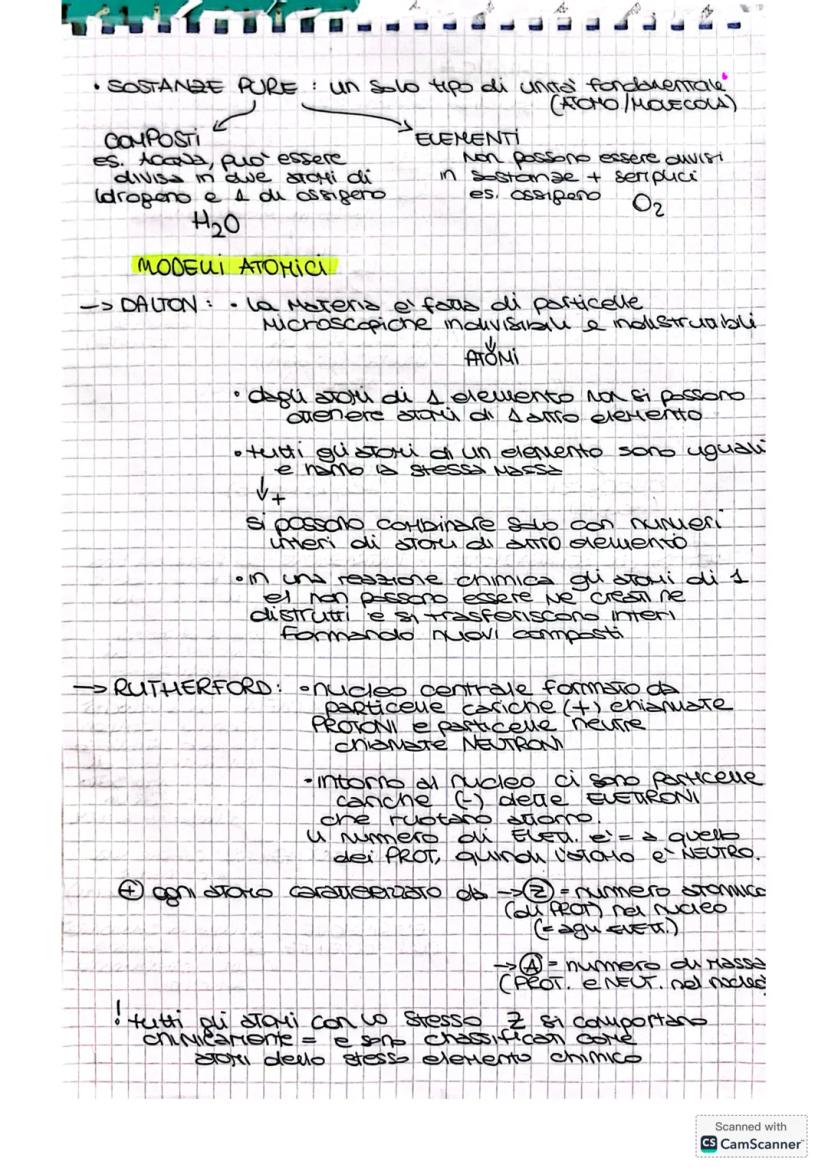 • SOSTANZE PURE : un solo tipo di unità fondamentale
(ATOMO/MOLECOLA)
COMPOSTI
es. Acqua, può essere
divisa in due atomi di
idrogeno e 1 di ossigeno
H₂O
ELEMENTI
Non possono essere divisi
in sostanze + semplici
es. ossigeno O₂
MODELLI ATOMICI
-> DALTON : • la materia è fatta di particelle
microscopiche indivisibili e indistruttibili
↓
ATOMI
• dagli atomi di 1 elemento non si possono
ottenere atomi di 1 altro elemento
• tutti gli atomi di un elemento sono uguali
e hanno la stessa massa
↓ +
si possono combinare solo con numeri
interi di atomi di altro elemento
• in una reazione chimica gli atomi di 1
el non possono essere nè creati nè
distrutti e si trasferiscono interi
formando nuovi composti
-> RUTHERFORD : • nucleo centrale formato da
particelle cariche (+) chiamate
PROTONI e particelle neutre
chiamate NEUTRONI
• intorno al nucleo ci sono particelle
cariche (-) dette ELETTRONI
che ruotano attorno.
Il numero di ELETT. è = a quello
dei PROT, quindi l'atomo è NEUTRO.
⊕ ogni atomo caratterizzato da -> Ⓩ = numero atomico
(di PROT) nel nucleo
(= agli ELETT.)
-> Ⓐ = numero di massa
(PROT. e NEUT. nel nucleo
! tutti gli atomi con lo stesso Z si comportano
chimicamente = e sono classificati come
atomi dello stesso elemento chimico
Scanned with
CS CamScanner